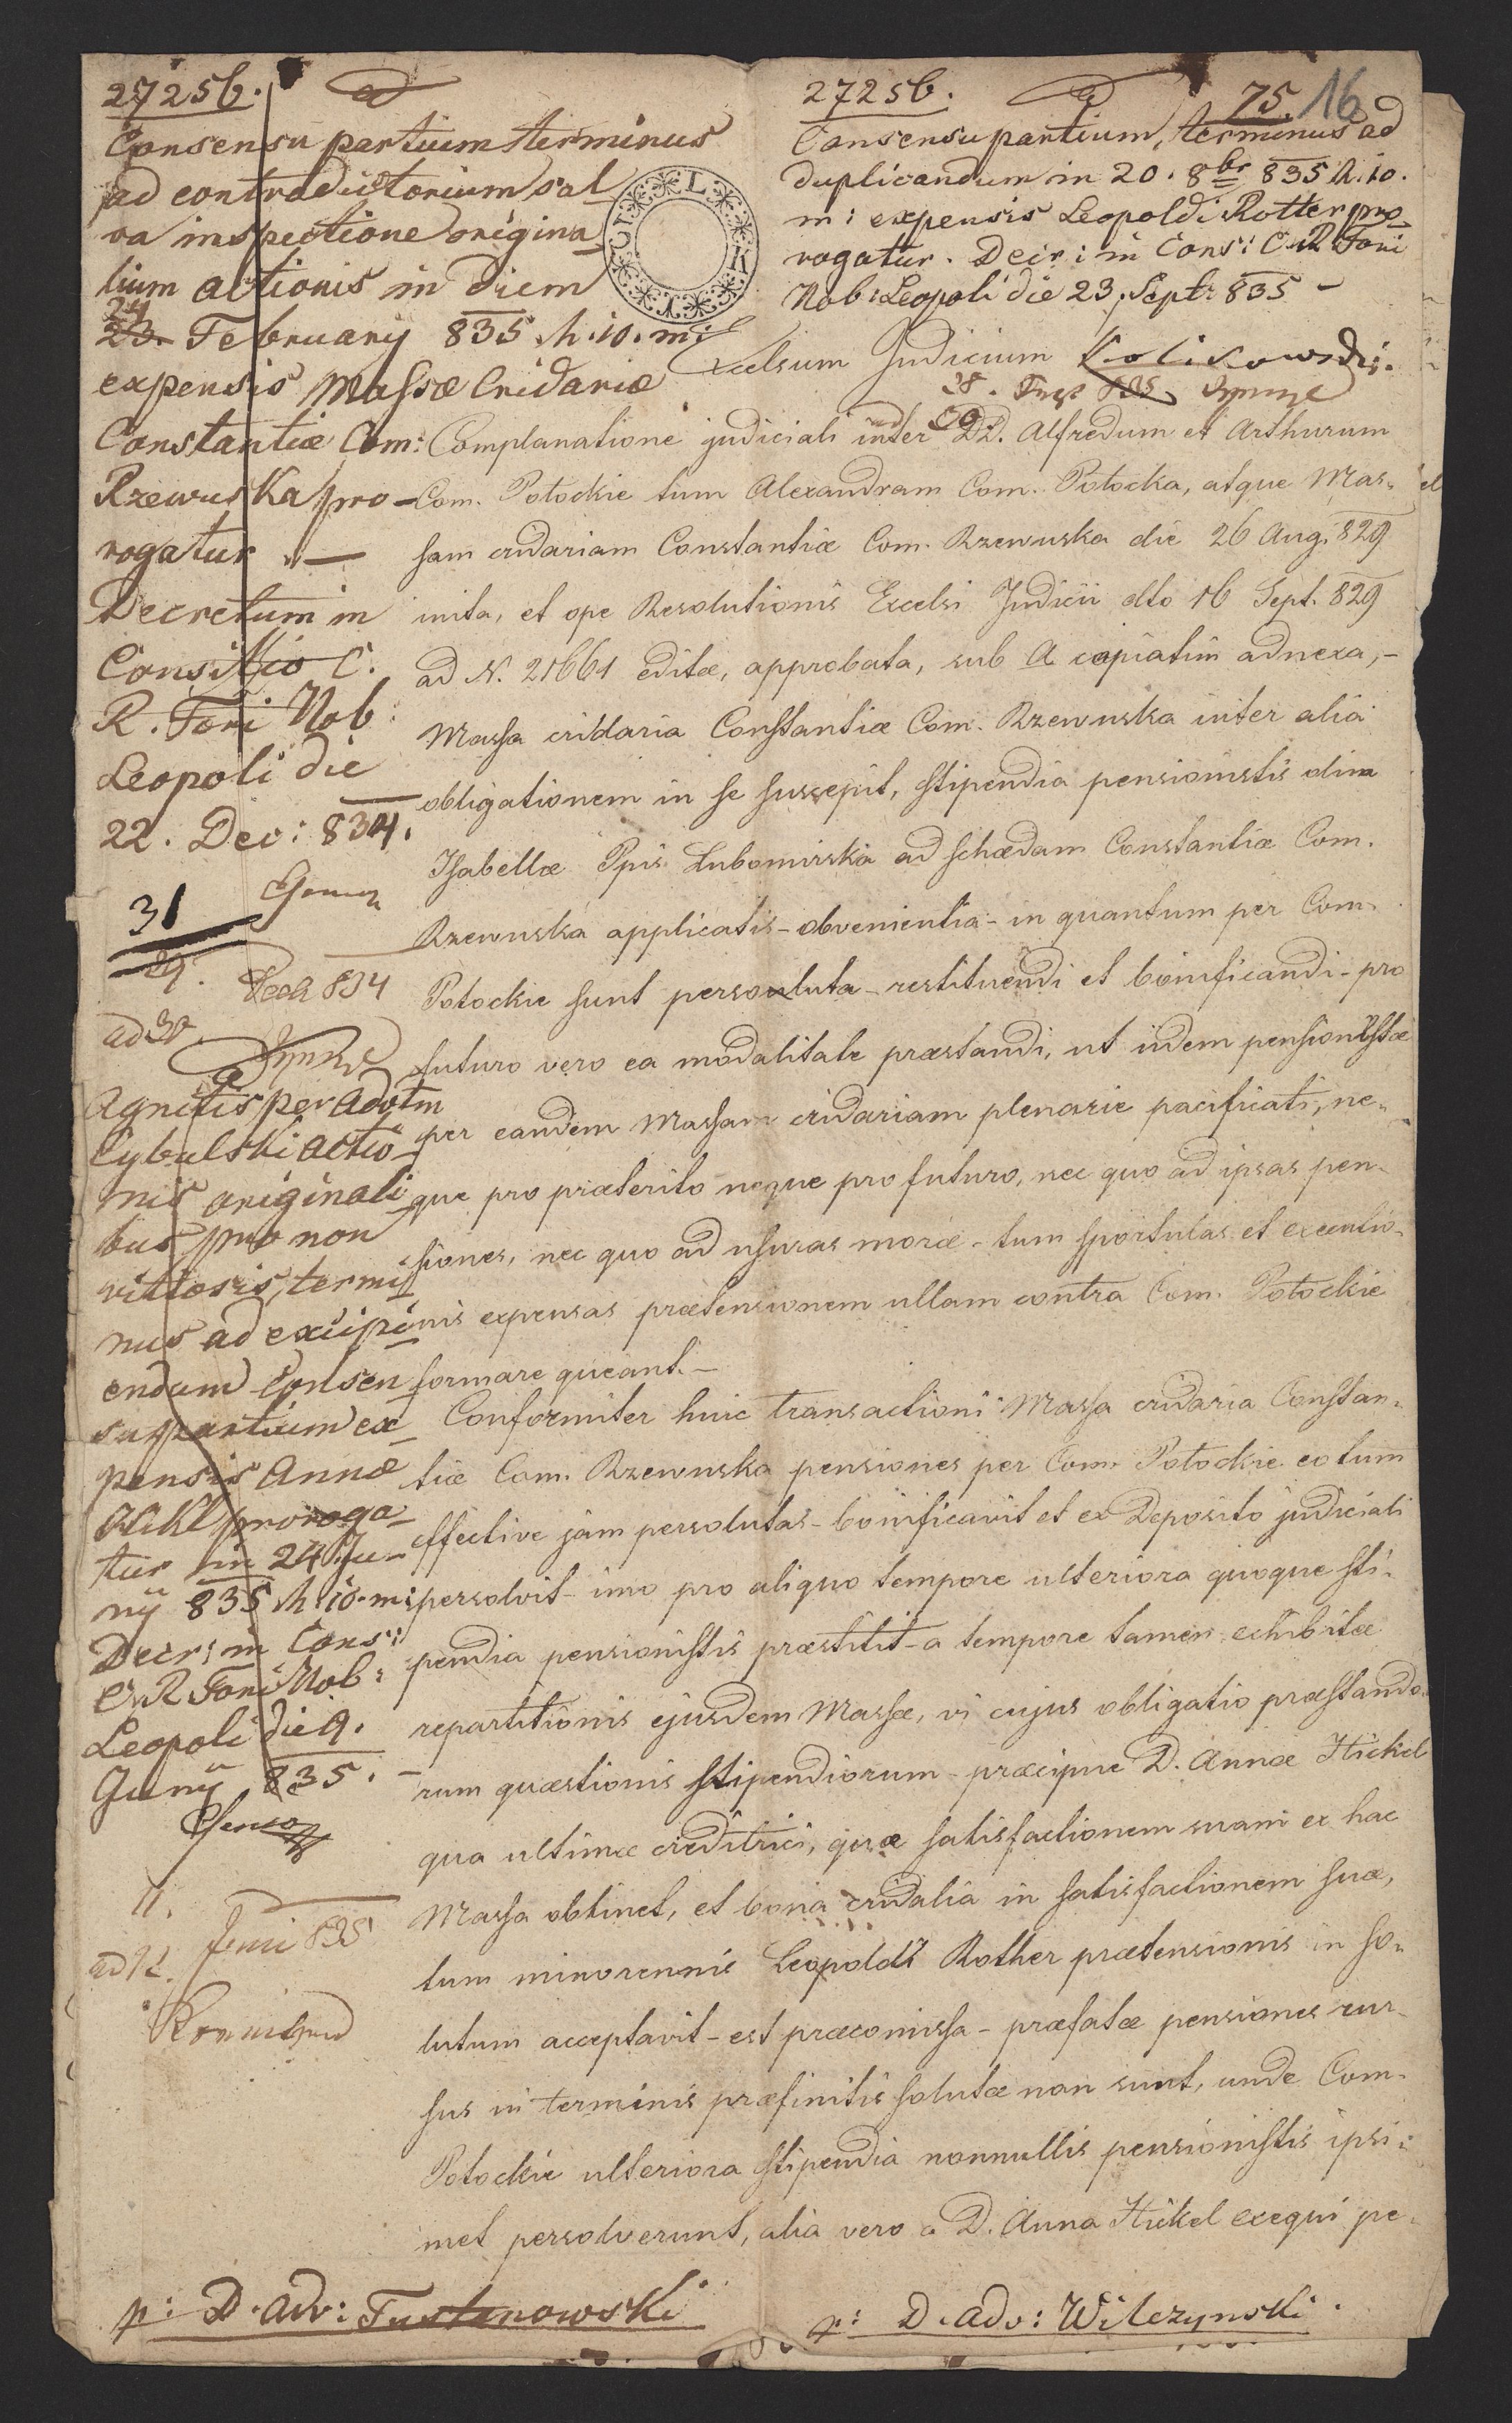 27256.
Consensu partium terminus
ad contradictorium sal
va inspectione origina
lium actionis in diem
24
23. February 835 h. 10. m:
expensis Massæ Cridariæ
Constantiæ Com:
Rzewuska pro-
rogatur. —
Decretum in
Consilio C.
R. Fori Nob:
Leopoli die
22. Dec: 834.
31
29.
834
ad 30
Agnitis per Advtm
Cybulski actio-
nis originali
bus pro non
vitiosis, termi
nus ad excipi-
endum Consen
su partium ex-
pensis Annæ
Hikl proroga-
tur in 24 Ju-
nÿ 835 h 10. m:
Decr: in Cons:
C. R. Fori Nob:
Leopoli die 9.
Junÿ 835. —
11.
Juni 835
ad 12.
27256.
75. 16
Consensu partium, terminus ad
duplicandum in 20. 8br 835 h. 10.
m: expensis Leopoldi Rotter pro
rogatur. Decr: in Cons: C. R. Fori
Nob: Leopoli die 23. Sept: 835 —
Excelsum Judicium
28.
Complanatione judiciali inter DD. Alfredum et Arthurum
Com. Potockie tum Alexandram Com. Potocka, atque Mas-
sam cridariam Constantiæ Com. Rzewuska die 26 Aug. 829
inita, et ope Resolutionis Excelsi Judicii dto 16 Sept. 829
ad N. 21661 editæ, approbata, sub A copiatim adnexa, -
Massa cridaria Constantiæ Com. Rzewuska inter alia
obligationem in se suscepit, stipendia pensionistis olim
Isabellæ Ppis Lubomirska ad schædam Constantiæ Com.
Rzewuska applicatis - obvenientia - in quantum per Com.
Potockie sunt persoluta - restituendi et bonificandi - pro
futuro vero ea modalitate præstandi, ut iidem pensionistæ
per eandem Massam cridariam plenarie pacificati, ne-
que pro præterito neque pro futuro, nec quo ad ipsas pen-
siones, nec quo ad usuras moræ - tum sportulas et executio-
nis expensas prætensionem ullam contra Com. Potockie
formare queant. —
Conformiter huic transactioni Massa cridaria Constan-
tiæ Com. Rzewuska pensiones per Com. Potockie eotum
effective jam persolutas - bonificavit et ex Deposito judiciali
persolvit - imo pro aliquo tempore ulteriora quoque sti-
pendia pensionistis præstitit - a tempore tamen exhibitæ
repartitionis ejusdem Massæ, vi cujus obligatio præstando-
rum quæstionis stipendiorum - præcipue D. Annæ Hickel
qua ultimæ creditrici, quæ satisfactionem suam ex hac
Massa obtinet, et bona cridalia in satisfactionem suæ,
tum minorennis Leopoldi Rother prætensionis in so-
lutum acceptavit - est præcomissa - præfatæ pensiones rur-
sus in terminis præfinitis solutæ non sunt, unde Com.
Potockie ulteriora stipendia nonnullis pensionistis ipsi-
met persolverunt, alia vero a D. Anna Hickel exequi pe-
p: D. Adv: Tustanowski
p: D. Adv: Wilczynski.